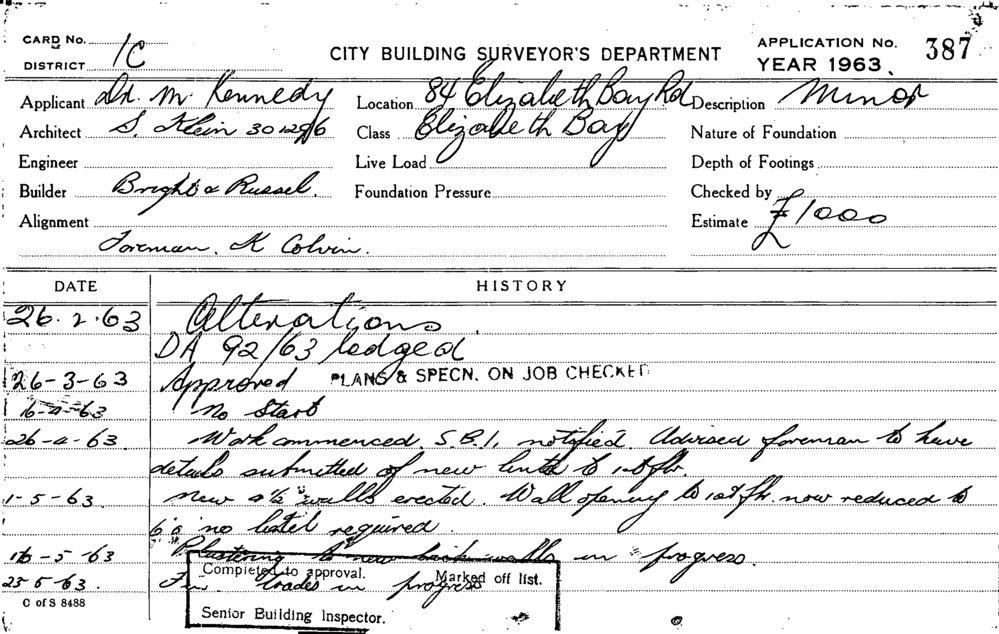 CARD NO. 1C
DISTRICT
CITY BUILDING SURVEYOR'S DEPARTMENT
APPLICATION NO. 387
YEAR 1963.
Applicant Dr. M. Kennedy Location 84 Elizabeth Bay Rd Description Minor
Architect S. Klein Class Elizabeth Bay Nature of Foundation
Engineer Live Load Depth of Footings
Builder Bright & Russel. Foundation Pressure Checked by
Alignment Estimate £1000
Foreman. K Colvin.
DATE HISTORY
26.2.63 Alterations
DA 92/63 lodged
26-3-63 Approved PLANS & SPECN. ON JOB CHECKED
16-4-63 No start
26-4-63 Work commenced. S.B.I. notified. Advised foreman to have
details submitted of new lintel to 1st flr.
1-5-63 New 4½" walls erected. Wall opening to 1st flr. now reduced to
6'0" no lintel required.
16-5-63 Plastering to new brick walls in progress.
23 5 63. Fin. trades in progress
Completed to approval. Marked off list.
Senior Building Inspector.
C of S 8488